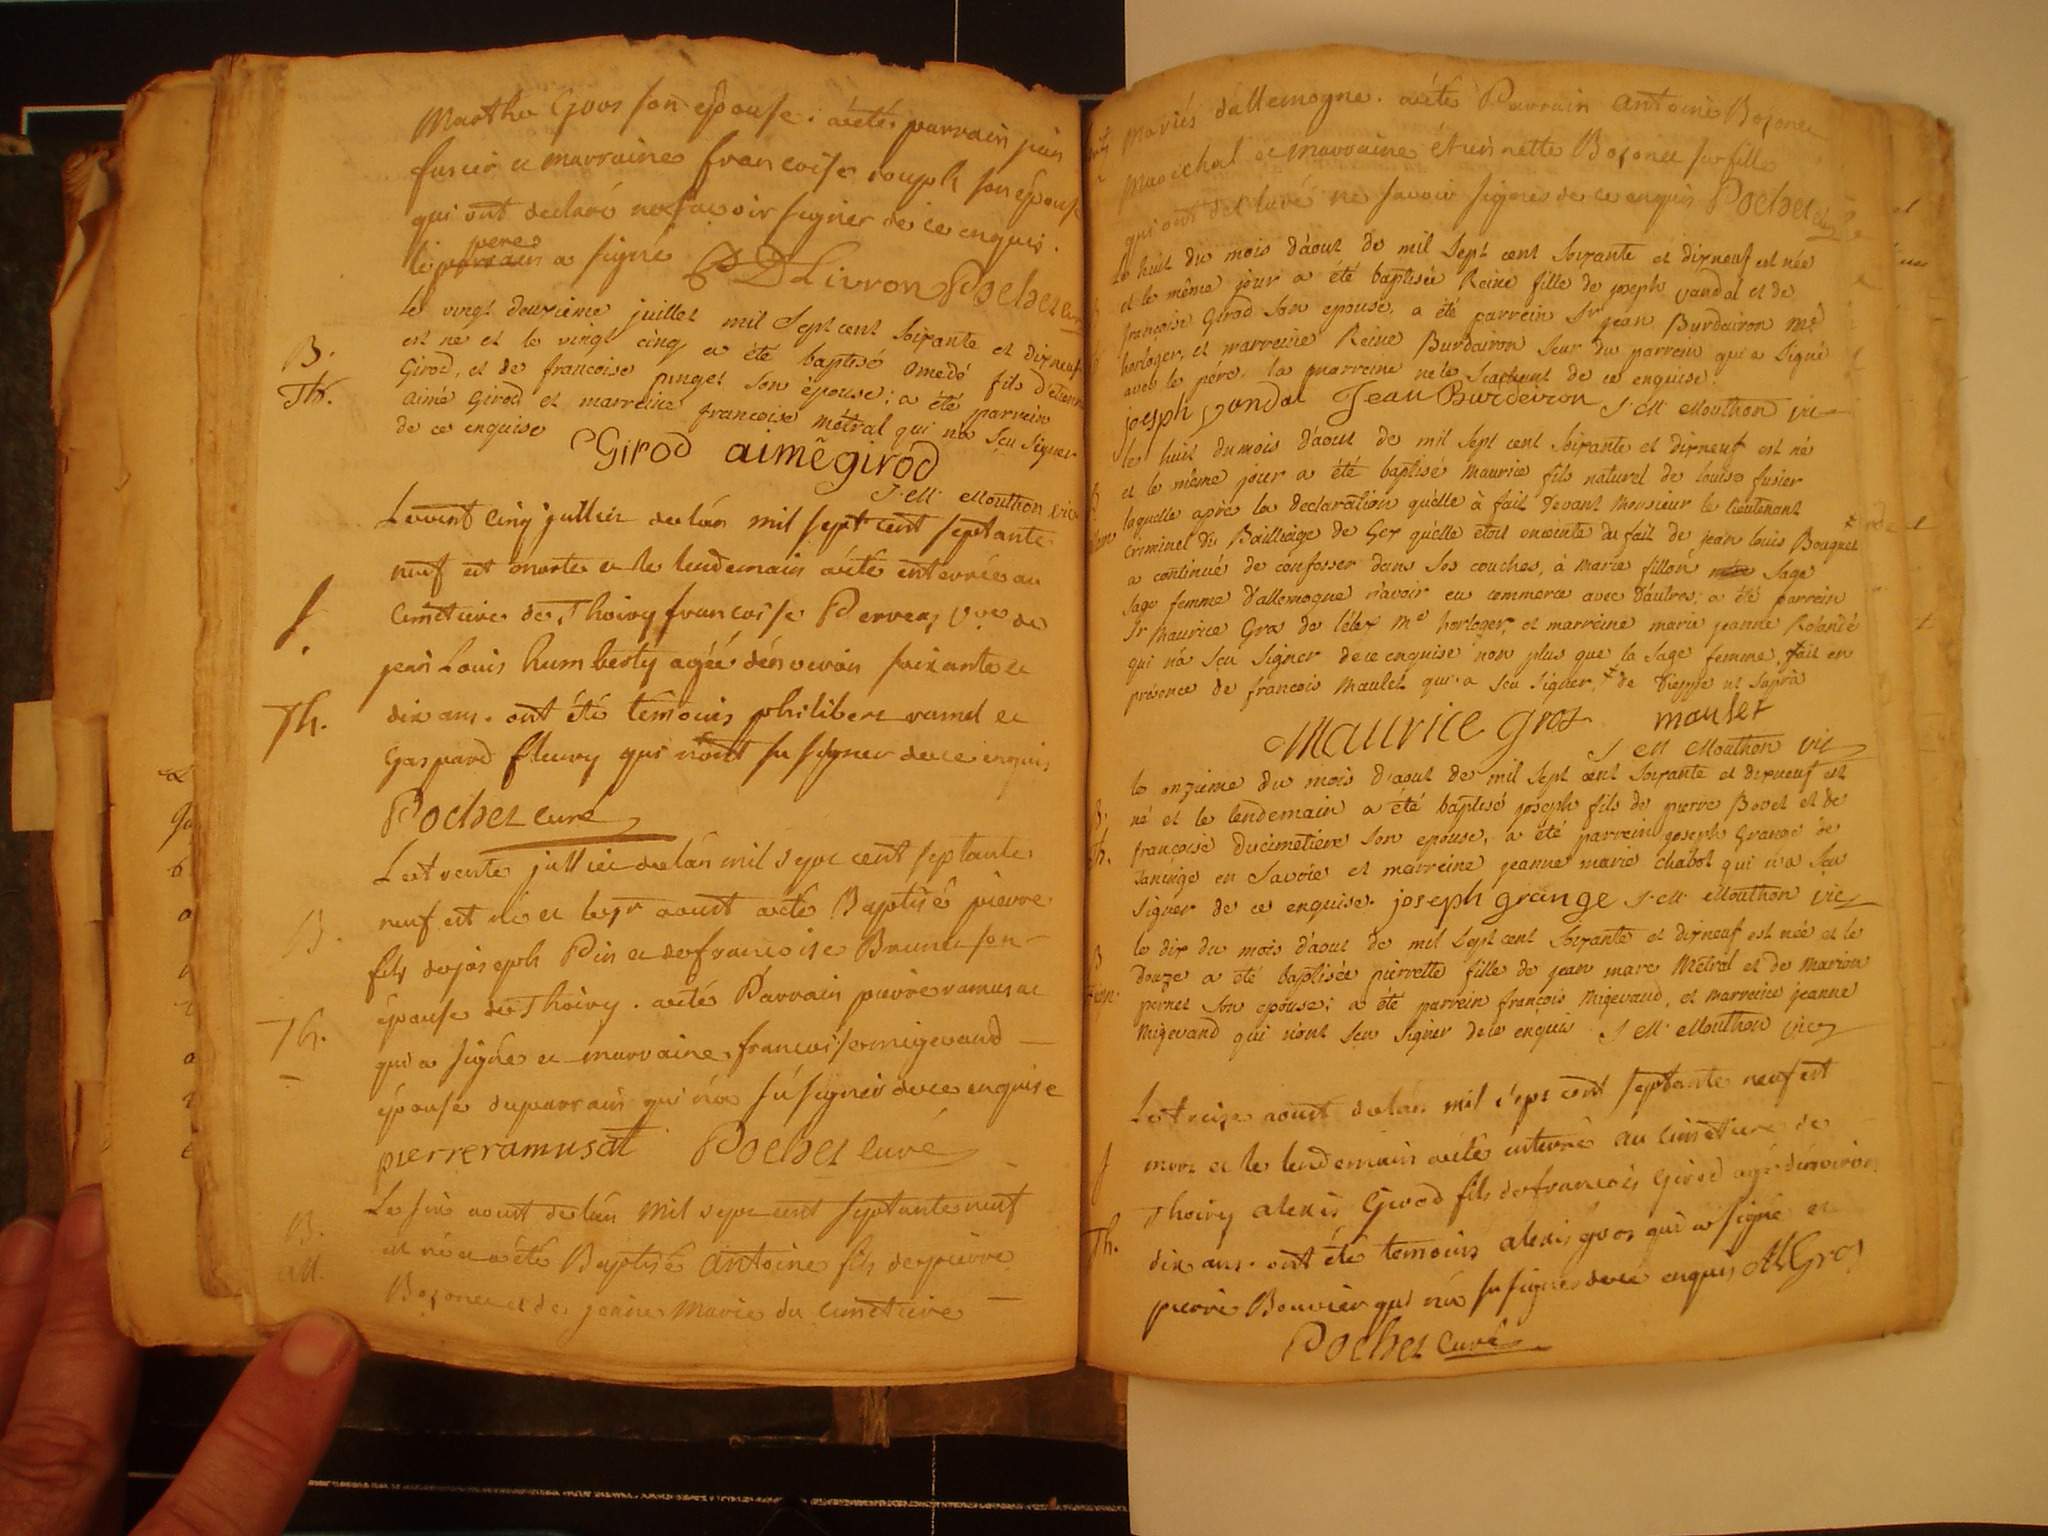 Marthe Gros son épouse. a été parrain jean
fusier et marraine francoise souph son épouse
qui ont declaré ne scavoir signer de ce enquis.
le pere parrain a signé P D Livron Pochet curé
B.
Th.
le vingt deuxieme juillet mil sept cent soixante et dixneuf
est né et le vingt cinq a été baptisé Amedé fils d'etienne
Girod, et de francoise pinget son épouse; a été parrein
aimé Girod et marreine francoise métral qui n'a sçu signer
de ce enquise Girod aimé girod
J. M. Mouthon vic
S.
Th.
Le vint cinq julliet de l'án mil sept cent septante
neuf est morte et le lendemain a été enterrée au
cimetiere de Thoiry francoise Perveas v.ve de
jean Louis humberty agée d'énviron soixante et
dix ans. ont été temoins philibert ramel et
Gaspard fleury qui n'ont su signer de ce enquis
Pochet curé
B.
Th.
Le trente julliet de l'án mil sept cent septante
neuf est né et le 1r aoust a été Baptisé pierre
fils de joseph Pin et de francoise Brunet son
épouse de Thoiry. a été Parrain pierre ramusat
qui a signé et marraine francoise migevand
épouse du parrain qui n'a sú signer de ce enquise
pierre ramusat Pochet curé
B.
all.
Le six aoust de l'án mil sept cent septante neuf
est né et a été Baptisé Antoine fils de pierre
Bozonet et de jeanne Marie du cimetiere
mariés d'allemogne. a été Parrain antoine Bozonet
marechal et marraine étiennette Bozonet sa fille
qui ont declaré ne savoir signer de ce enquis Pochet curé
le huit du mois d'aout de mil sept cent soixante et dixneuf est née
et le même jour a été baptisée Reine fille de joseph vandal et de
françoise Girod son epouse, a été parrein Sr jean Burdairon md
horloger, et marreine Reine Burdairon seur du parrein qui a signé
avec le pére, la marreine ne le sachant de ce enquise.
joseph vondal Jean Burdeiron J. M. Mouthon vic
le huit du mois d'aout de mil sept cent soixante et dixneuf est né
et le même jour a été baptisé maurice fils naturel de louise fusier
laquelle après la declaration quelle à fait devant Monsieur le lieutenant
criminel du Bailliage de Gex quelle etoit enceinte du fait de jean louis Bouquet
a continué de confesser dans ses couches, à marie fillon sage
sage femme d'allemogne n'avoir eu commerce avec d'autres; a été parrein
Sr maurice Gra de lélex md horloger, et marreine marie jeanne Rolande
qui n'a sçu signer de ce enquise non plus que la sage femme, fait en
présence de francois Maulet qui a sçu signer, de Dieppe ut supra
Maurice gros maulet
J M Mouthon vic
B.
Th.
le onzieme du mois d'aout de mil sept cent soixante et dixneuf est
né et le lendemain a été baptisé joseph fils de pierre Bovet et de
françoise Ducimetiere son epouse, a été parrein joseph Grange de
taninge en savoie et marreine jeanne marie chabot qui n'a sçu
signer de ce enquise. joseph grange J. M. Mouthon vic
B
le dix du mois d'aout de mil sept cent soixante et dixneuf est née et le
douze a été baptisée pierrette fille de jean marc Métral et de Marion
pernet son epouse; a été parrein françois Migevand, et marreine jeanne
Migevand qui n'ont sçu signer de ce enquis J M Mouthon vic
S
Th.
Le treize aoust de l'án mil sept cent septante neuf est
mort et le lendemain a été enterré au cimetiere de
Thoiry alexis Girod fils de francois Girod agé d'énviron
dix ans. ont été temoins alexis gros qui a signé et
pierre Bouvier qui n'a su signer de ce enquis Al Gros
Pochet curé